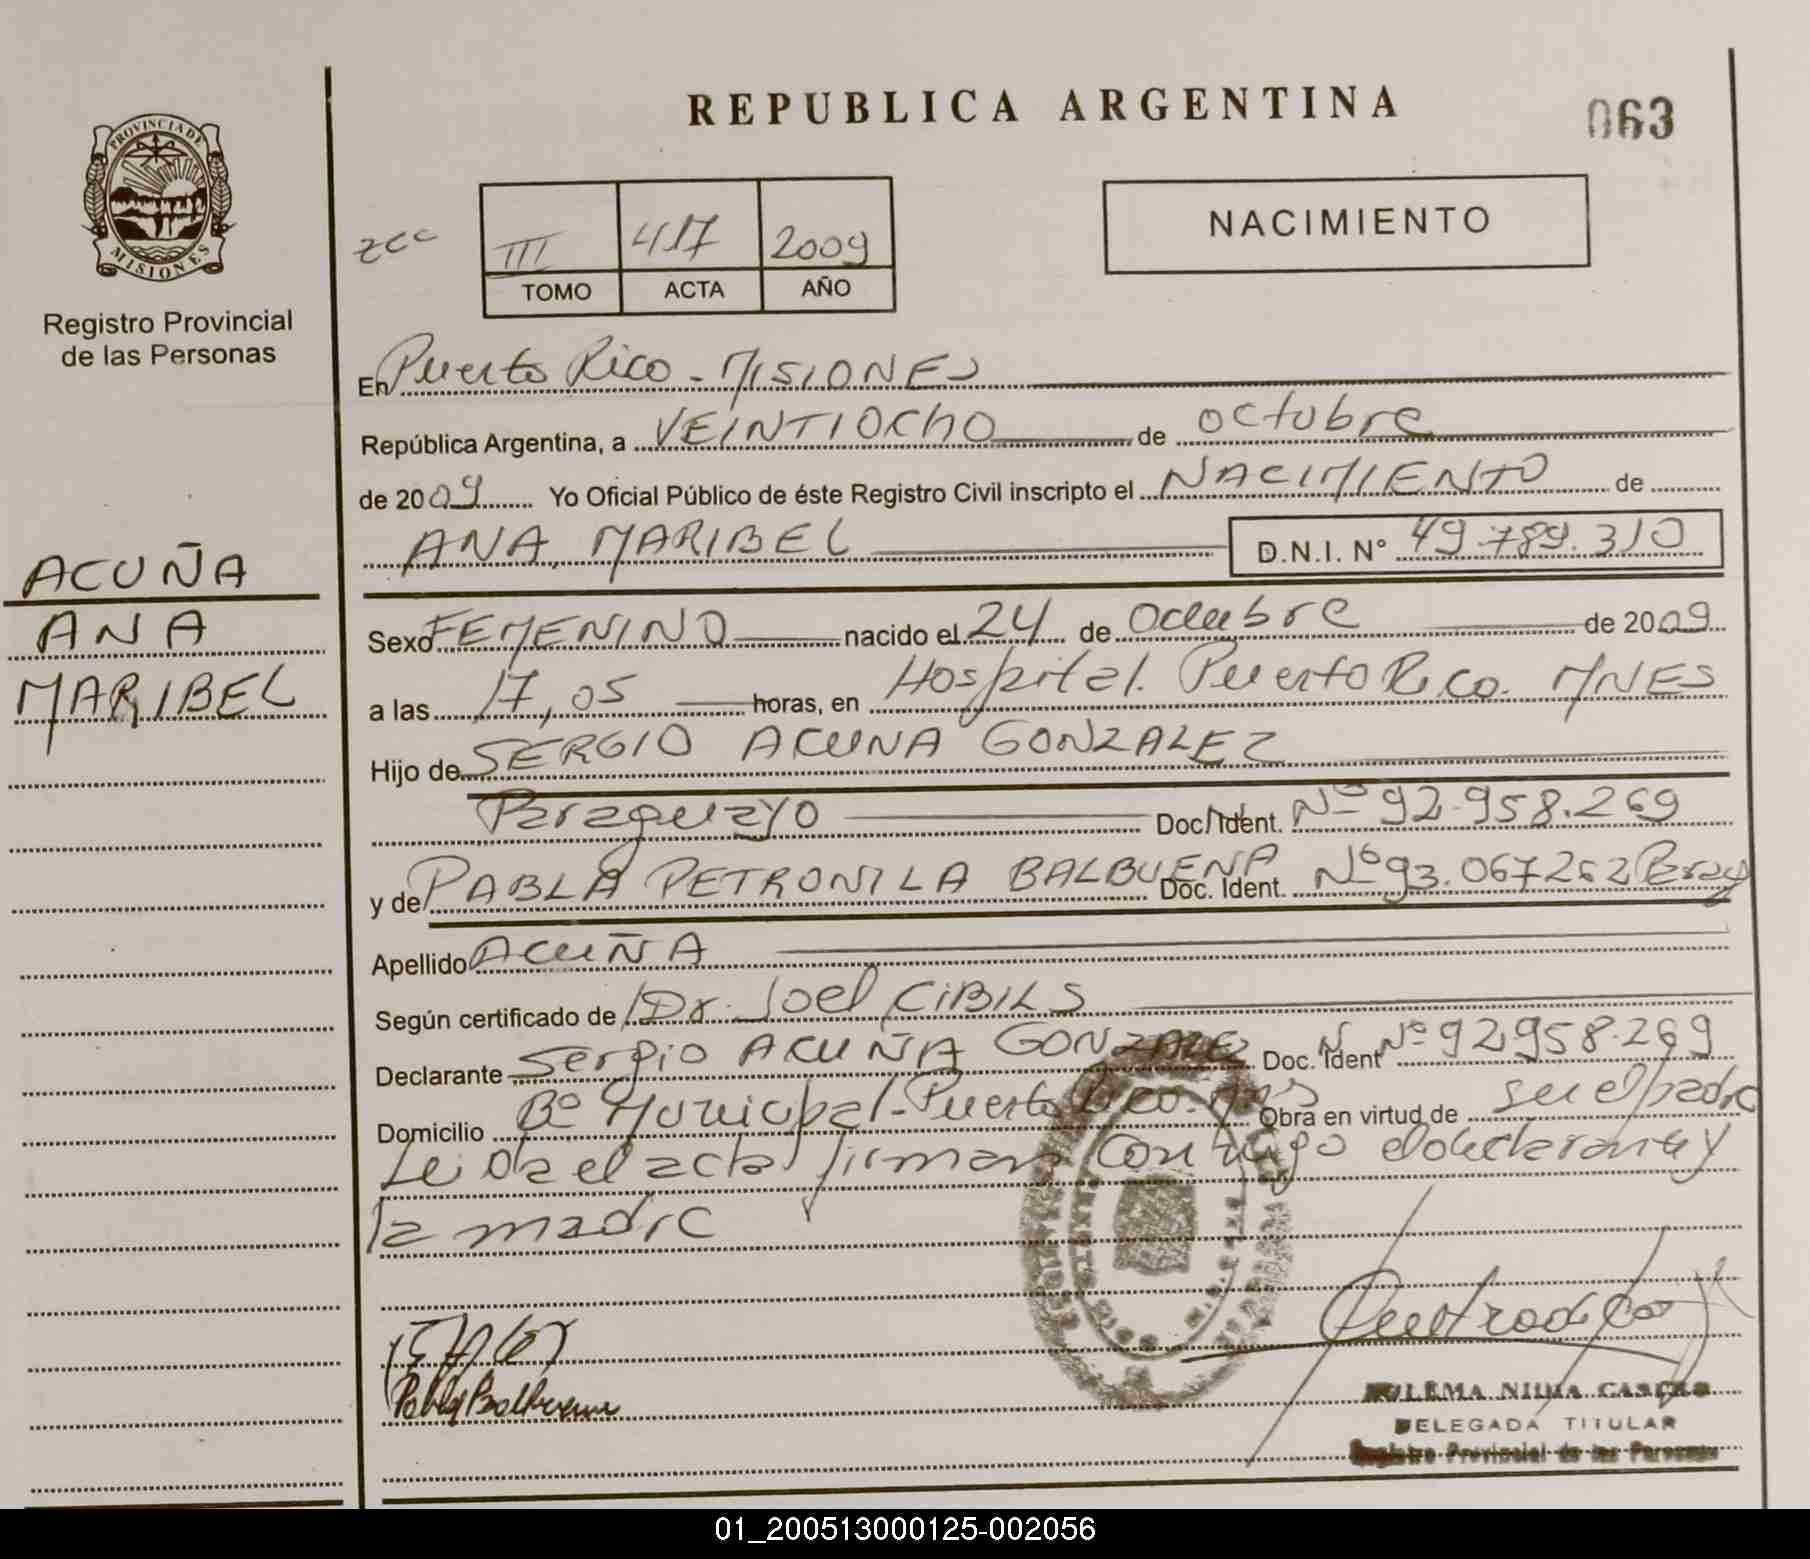 REPUBLICA ARGENTINA
063
PROVINCIA DE
MISIONES
Registro Provincial
de las Personas
III 417 2009
TOMO ACTA AÑO
NACIMIENTO
En Puerto Rico - MISIONES
República Argentina, a VEINTIOCHO de octubre
de 2009 Yo Oficial Público de éste Registro Civil inscripto el NACIMIENTO de
ANA MARIBEL D.N.I. N° 49.789.310
ACUÑA
ANA
MARIBEL
Sexo FEMENINO nacido el 24 de Octubre de 2009
a las 17,05 horas, en Hospital. Puerto Rico. MNES
Hijo de SERGIO ACUÑA GONZALEZ
Paraguayo Doc. Ident. N° 92.958.269
y de PABLA PETRONILA BALBUENA Doc. Ident. N° 93.067262 Parag
Apellido ACUÑA
Según certificado de Dr. Joel CIBILS
Declarante Sergio ACUÑA GONZALEZ Doc. Ident N° 92958.269
Domicilio B° Municipal - Puerto Rico. Obra en virtud de ser el padre
Leida el acta firman conmigo el declarante y
la madre
Pabla Balbuena
CASTRO
DELEGADA TITULAR
Registro Provincial de las Personas
01_200513000125-002056